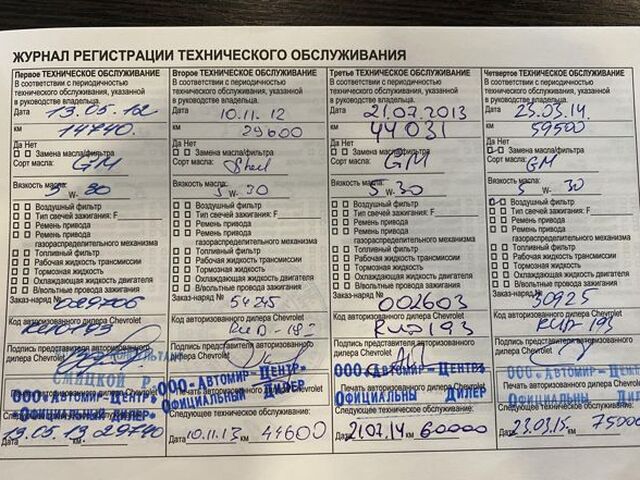 ЖУРНАЛ РЕГИСТРАЦИИ ТЕХНИЧЕСКОГО ОБСЛУЖИВАНИЯ
Первое ТЕХНИЧЕСКОЕ ОБСЛУЖИВАНИЕ
В соответствии с периодичностью
технического обслуживания, указанной
в руководстве владельца.
Дата 13.05.12
км 14740.
Да Нет
Замена масла/фильтра
Сорт масла: GM
Вязкость масла:
5 W- 30
Воздушный фильтр
Тип свечей зажигания: F
Ремни привода
Ремень привода
газораспределительного механизма
Топливный фильтр
Рабочая жидкость трансмиссии
Тормозная жидкость
Охлаждающая жидкость двигателя
В/вольтные провода зажигания
Заказ-наряд № 029706
Код авторизованного дилера Chevrolet
Подпись представителя авторизованного
дилера Chevrolet
СМИЦКОЙ Р.
ООО «АВТОМИР-ЦЕНТР»
ОФИЦИАЛЬНЫЙ ДИЛЕР
13.05.13 29740
Второе ТЕХНИЧЕСКОЕ ОБСЛУЖИВАНИЕ
В соответствии с периодичностью
технического обслуживания, указанной
в руководстве владельца.
Дата 10.11.12
км 29600
Да Нет
Замена масла/фильтра
Сорт масла: Shell
Вязкость масла:
5 W- 30
Воздушный фильтр
Тип свечей зажигания: F
Ремни привода
Ремень привода
газораспределительного механизма
Топливный фильтр
Рабочая жидкость трансмиссии
Тормозная жидкость
Охлаждающая жидкость двигателя
В/вольтные провода зажигания
Заказ-наряд № 54245
Код авторизованного дилера Chevrolet
Подпись представителя авторизованного
дилера Chevrolet
ООО «АВТОМИР-ЦЕНТР»
ОФИЦИАЛЬНЫЙ ДИЛЕР
Следующее техническое обслуживание:
Дата 10.11.13 км 44600
Третье ТЕХНИЧЕСКОЕ ОБСЛУЖИВАНИЕ
В соответствии с периодичностью
технического обслуживания, указанной
в руководстве владельца.
Дата 21.07.2013
км 44031
Да Нет
Замена масла/фильтра
Сорт масла: GM
Вязкость масла:
5 W- 30
Воздушный фильтр
Тип свечей зажигания: F
Ремни привода
Ремень привода
газораспределительного механизма
Топливный фильтр
Рабочая жидкость трансмиссии
Тормозная жидкость
Охлаждающая жидкость двигателя
В/вольтные провода зажигания
Заказ-наряд № 002603
Код авторизованного дилера Chevrolet
RUD193
Подпись представителя авторизованного
дилера Chevrolet
ООО «АВТОМИР-ЦЕНТР»
ОФИЦИАЛЬНЫЙ ДИЛЕР
Следующее техническое обслуживание:
Дата 21.07.14 км 60000
Четвертое ТЕХНИЧЕСКОЕ ОБСЛУЖИВАНИЕ
В соответствии с периодичностью
технического обслуживания, указанной
в руководстве владельца.
Дата 23.03.14.
км 59500
Да Нет
Замена масла/фильтра
Сорт масла: GM
Вязкость масла:
5 W- 30
Воздушный фильтр
Тип свечей зажигания: F
Ремни привода
Ремень привода
газораспределительного механизма
Топливный фильтр
Рабочая жидкость трансмиссии
Тормозная жидкость
Охлаждающая жидкость двигателя
В/вольтные провода зажигания
Заказ-наряд № 30925
Код авторизованного дилера Chevrolet
RUD-193
Подпись представителя авторизованного
дилера Chevrolet
ООО «АВТОМИР-ЦЕНТР»
Печать авторизованного дилера Chevrolet
ОФИЦИАЛЬНЫЙ ДИЛЕР
Следующее техническое обслуживание:
Дата 23.03.15 км 75000